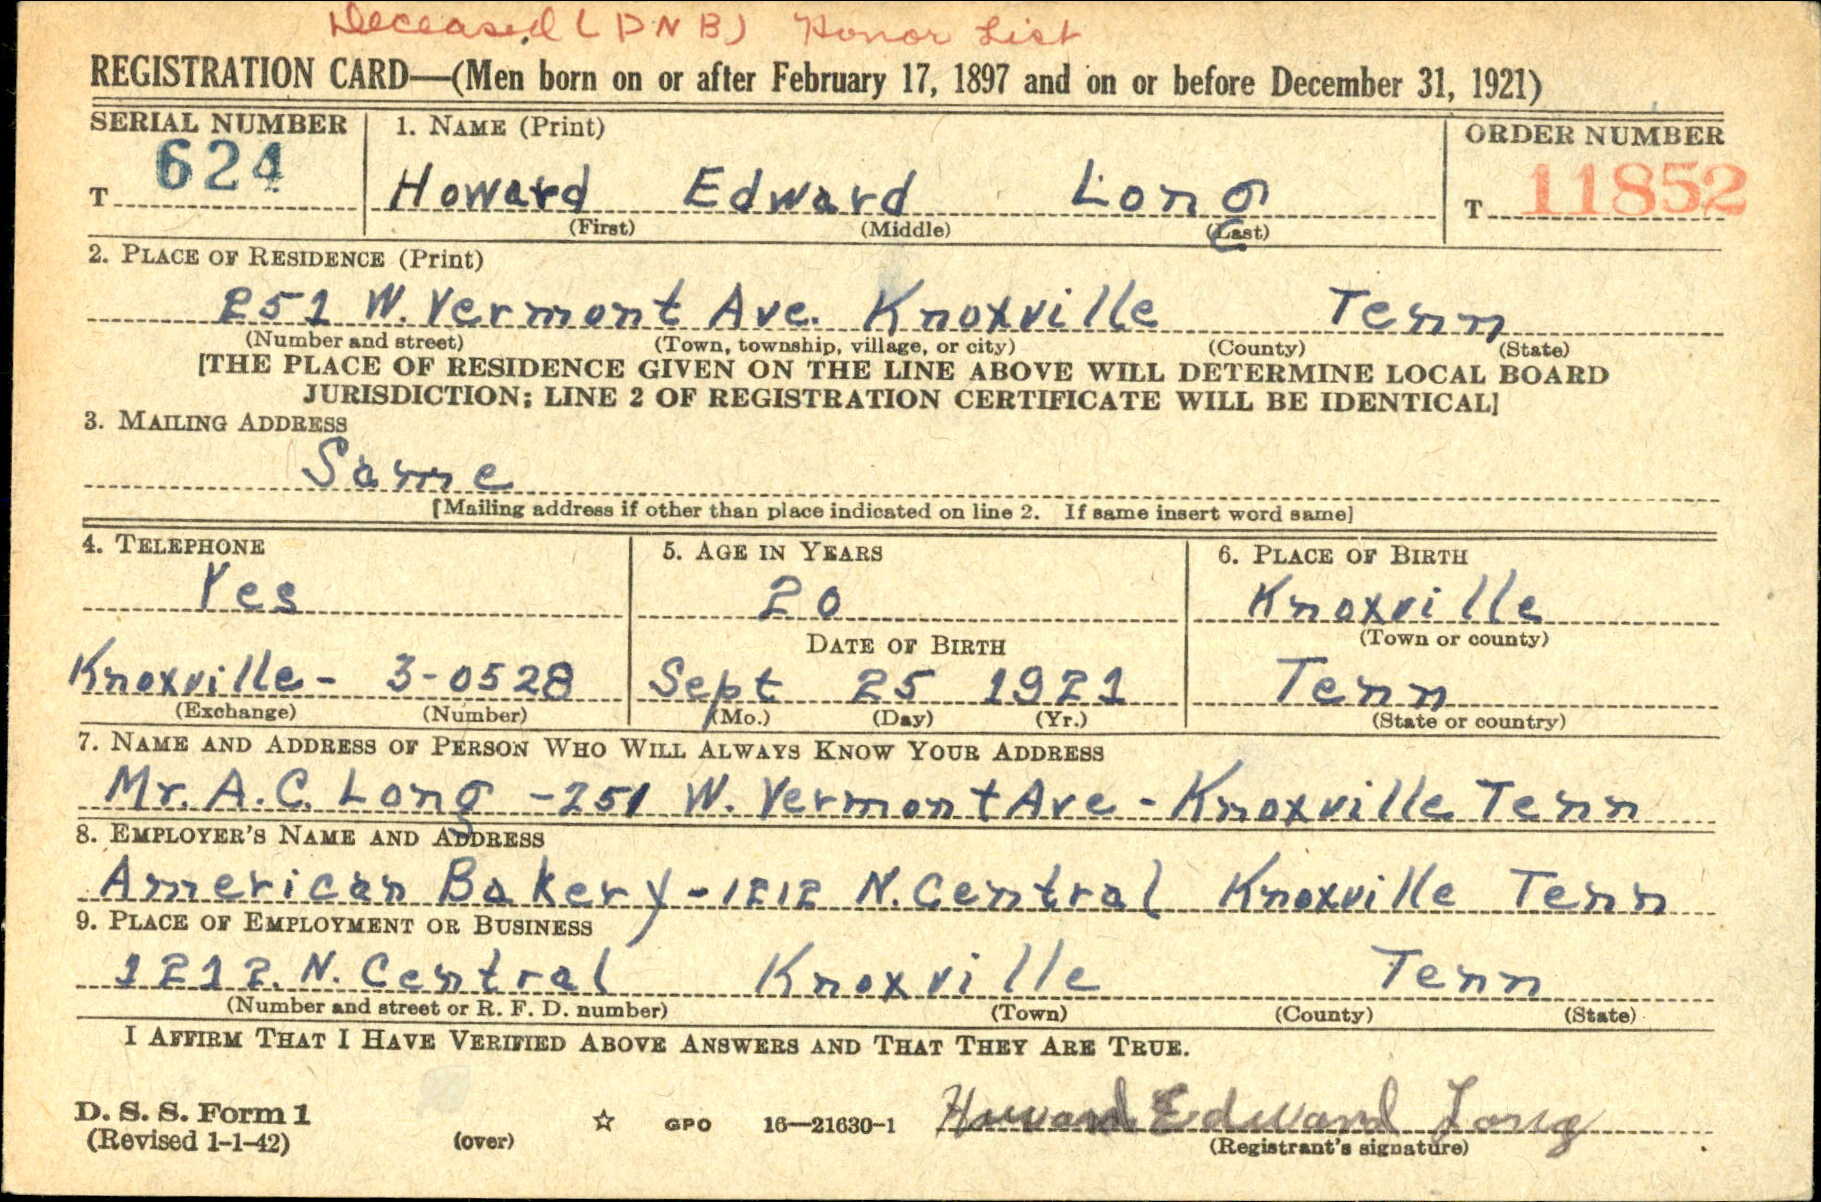 Deceased (DNB) Honor List
REGISTRATION CARD—(Men born on or after February 17, 1897 and on or before December 31, 1921)
SERIAL NUMBER 1. NAME (Print) ORDER NUMBER
T 624 Howard Edward Long T 11852
(First) (Middle) (Last)
2. PLACE OF RESIDENCE (Print)
251 W. Vermont Ave. Knoxville Tenn
(Number and street) (Town, township, village, or city) (County) (State)
[THE PLACE OF RESIDENCE GIVEN ON THE LINE ABOVE WILL DETERMINE LOCAL BOARD
JURISDICTION; LINE 2 OF REGISTRATION CERTIFICATE WILL BE IDENTICAL]
3. MAILING ADDRESS
Same
[Mailing address if other than place indicated on line 2. If same insert word same]
4. TELEPHONE 5. AGE IN YEARS 6. PLACE OF BIRTH
Yes 20 Knoxville
DATE OF BIRTH (Town or county)
Knoxville - 3-0528 Sept 25 1921 Tenn
(Exchange) (Number) (Mo.) (Day) (Yr.) (State or country)
7. NAME AND ADDRESS OF PERSON WHO WILL ALWAYS KNOW YOUR ADDRESS
Mr. A. C. Long - 251 W. Vermont Ave - Knoxville Tenn
8. EMPLOYER'S NAME AND ADDRESS
American Bakery - 1212 N. Central Knoxville Tenn
9. PLACE OF EMPLOYMENT OR BUSINESS
1212. N. Central Knoxville Tenn
(Number and street or R. F. D. number) (Town) (County) (State)
I AFFIRM THAT I HAVE VERIFIED ABOVE ANSWERS AND THAT THEY ARE TRUE.
D. S. S. Form 1
(Revised 1-1-42) (over) ☆ GPO 16—21630-1 Howard Edward Long
(Registrant's signature)